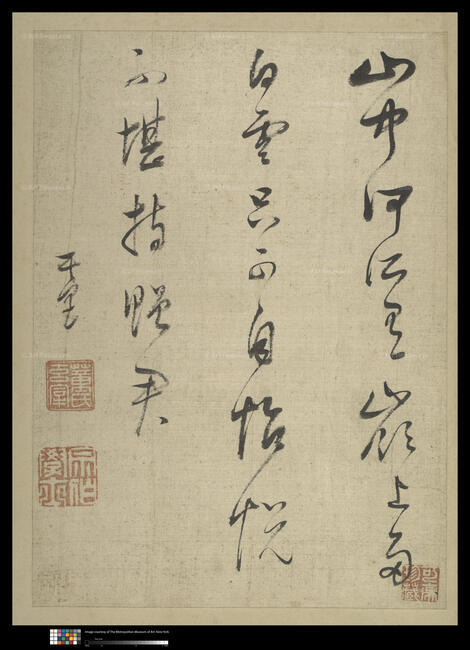 山中何所有嶺上多
白雲只可自怡悅
不堪持贈君
玄宰
Image courtesy of The Metropolitan Museum of Art, New York